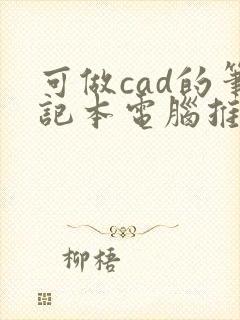 可做cad的筆
記本電腦推
柳梧